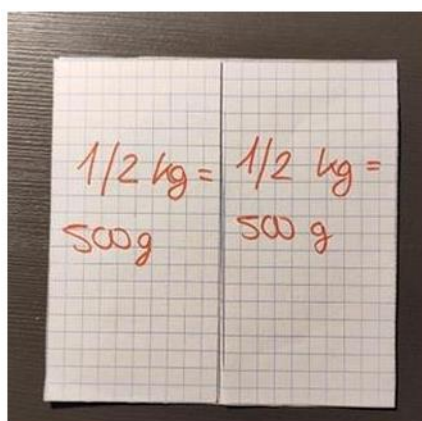 1/2 kg =
500g
1/2 kg =
500 g